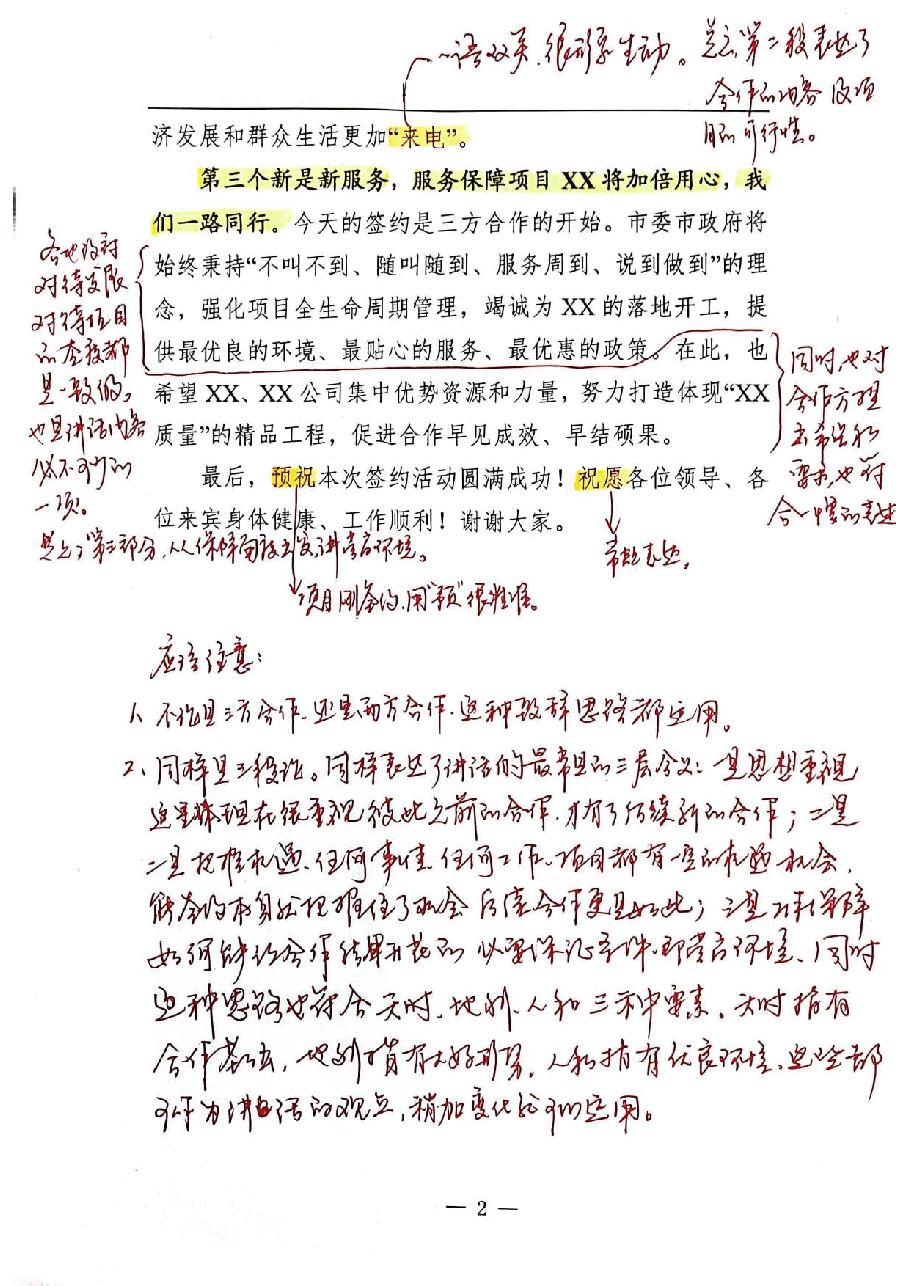 一语双关、很形象生动。总之,第二段表达了
合作的内容及项
目的可行性。
济发展和群众生活更加“来电”。
第三个新是新服务，服务保障项目 XX 将加倍用心，我
们一路同行。今天的签约是三方合作的开始。市委市政府将
始终秉持“不叫不到、随叫随到、服务周到、说到做到”的理
念，强化项目全生命周期管理，竭诚为 XX 的落地开工，提
供最优良的环境、最贴心的服务、最优惠的政策。在此，也
希望 XX、XX 公司集中优势资源和力量，努力打造体现“XX
质量”的精品工程，促进合作早见成效、早结硕果。
最后，预祝本次签约活动圆满成功！祝愿各位领导、各
位来宾身体健康、工作顺利！谢谢大家。
各地政府
对待发展
对待项目
的态度都
是一致的,
也是讲话内容
必不可少的
一项。
总之,第三部分,从保障角度出发,讲营商环境。
同时,也对
合作方提
出希望和
要求,也符
合一惯的表述
常规表达,
项目刚签约,用“预”很准确。
应该注意:
1、不论是三方合作,还是两方合作,这种致辞思路都适用。
2、同样是三段论。同样表达了讲话的最常见的三层含义:一是思想重视
这里体现在很重视彼此之前的合作,才有了后续新的合作;二是
二是把握机遇、任何事情、任何工作、项目都有一定的机遇机会,
能签约本身就把握住了机会,后续合作更是如此;三是保障
如何能给合作结果开花的必要保证条件,即营商环境、同时
这种思路也符合天时、地利、人和三种要素,天时指有
合作基础,地利指有大好形势,人和指有优良环境,这些都
可作为讲话的观点,稍加变化便可以运用。
— 2 —